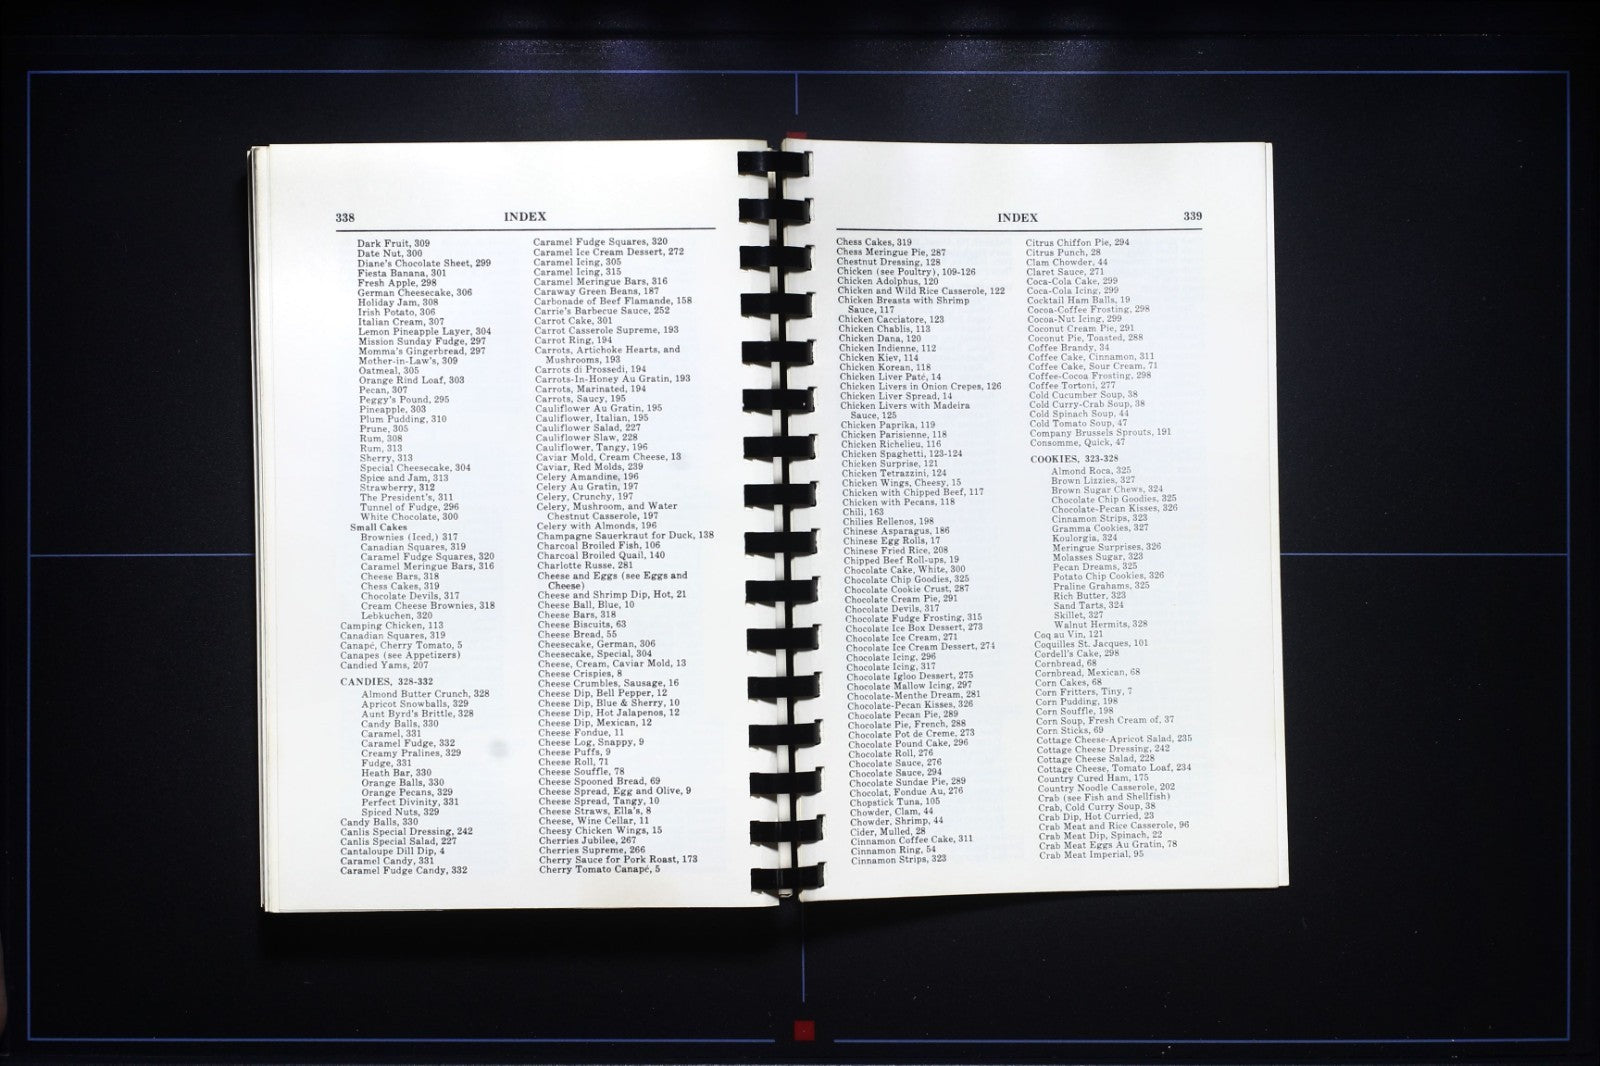 338
INDEX
Dark Fruit, 309
Date Nut, 300
Diane's Chocolate Sheet, 299
Fiesta Banana, 301
Fresh Apple, 298
German Cheesecake, 306
Holiday Jam, 308
Irish Potato, 306
Italian Cream, 307
Lemon Pineapple Layer, 304
Mission Sunday Fudge, 297
Momma's Gingerbread, 297
Mother-in-Law's, 309
Oatmeal, 305
Orange Rind Loaf, 303
Pecan, 307
Peggy's Pound, 295
Pineapple, 303
Plum Pudding, 310
Prune, 305
Rum, 308
Rum, 313
Sherry, 313
Special Cheesecake, 304
Spice and Jam, 313
Strawberry, 312
The President's, 311
Tunnel of Fudge, 296
White Chocolate, 300
Small Cakes
Brownies (Iced,) 317
Canadian Squares, 319
Caramel Fudge Squares, 320
Caramel Meringue Bars, 316
Cheese Bars, 318
Chess Cakes, 319
Chocolate Devils, 317
Cream Cheese Brownies, 318
Lebkuchen, 320
Camping Chicken, 113
Canadian Squares, 319
Canapé, Cherry Tomato, 5
Canapes (see Appetizers)
Candied Yams, 207
CANDIES, 328-332
Almond Butter Crunch, 328
Apricot Snowballs, 329
Aunt Byrd's Brittle, 328
Candy Balls, 330
Caramel, 331
Caramel Fudge, 332
Creamy Pralines, 329
Fudge, 331
Heath Bar, 330
Orange Balls, 330
Orange Pecans, 329
Perfect Divinity, 331
Spiced Nuts, 329
Candy Balls, 330
Canlis Special Dressing, 242
Canlis Special Salad, 227
Cantaloupe Dill Dip, 4
Caramel Candy, 331
Caramel Fudge Candy, 332
Caramel Fudge Squares, 320
Caramel Ice Cream Dessert, 272
Caramel Icing, 305
Caramel Icing, 315
Caramel Meringue Bars, 316
Caraway Green Beans, 187
Carbonade of Beef Flamande, 158
Carrie's Barbecue Sauce, 252
Carrot Cake, 301
Carrot Casserole Supreme, 193
Carrot Ring, 194
Carrots, Artichoke Hearts, and
Mushrooms, 193
Carrots di Prossedi, 194
Carrots-In-Honey Au Gratin, 193
Carrots, Marinated, 194
Carrots, Saucy, 195
Cauliflower Au Gratin, 195
Cauliflower, Italian, 195
Cauliflower Salad, 227
Cauliflower Slaw, 228
Cauliflower, Tangy, 196
Caviar Mold, Cream Cheese, 13
Caviar, Red Molds, 239
Celery Amandine, 196
Celery Au Gratin, 197
Celery, Crunchy, 197
Celery, Mushroom, and Water
Chestnut Casserole, 197
Celery with Almonds, 196
Champagne Sauerkraut for Duck, 138
Charcoal Broiled Fish, 106
Charcoal Broiled Quail, 140
Charlotte Russe, 281
Cheese and Eggs (see Eggs and
Cheese)
Cheese and Shrimp Dip, Hot, 21
Cheese Ball, Blue, 10
Cheese Bars, 318
Cheese Biscuits, 63
Cheese Bread, 55
Cheesecake, German, 306
Cheesecake, Special, 304
Cheese, Cream, Caviar Mold, 13
Cheese Crispies, 8
Cheese Crumbles, Sausage, 16
Cheese Dip, Bell Pepper, 12
Cheese Dip, Blue & Sherry, 10
Cheese Dip, Hot Jalapenos, 12
Cheese Dip, Mexican, 12
Cheese Fondue, 11
Cheese Log, Snappy, 9
Cheese Puffs, 9
Cheese Roll, 71
Cheese Souffle, 78
Cheese Spooned Bread, 69
Cheese Spread, Egg and Olive, 9
Cheese Spread, Tangy, 10
Cheese Straws, Ella's, 8
Cheese, Wine Cellar, 11
Cheesy Chicken Wings, 15
Cherries Jubilee, 267
Cherries Supreme, 266
Cherry Sauce for Pork Roast, 173
Cherry Tomato Canapé, 5
INDEX
339
Chess Cakes, 319
Chess Meringue Pie, 287
Chestnut Dressing, 128
Chicken (see Poultry), 109-126
Chicken Adolphus, 120
Chicken and Wild Rice Casserole, 122
Chicken Breasts with Shrimp
Sauce, 117
Chicken Cacciatore, 123
Chicken Chablis, 113
Chicken Dana, 120
Chicken Indienne, 112
Chicken Kiev, 114
Chicken Korean, 118
Chicken Liver Paté, 14
Chicken Livers in Onion Crepes, 126
Chicken Liver Spread, 14
Chicken Livers with Madeira
Sauce, 125
Chicken Paprika, 119
Chicken Parisienne, 118
Chicken Richelieu, 116
Chicken Spaghetti, 123-124
Chicken Surprise, 121
Chicken Tetrazzini, 124
Chicken Wings, Cheesy, 15
Chicken with Chipped Beef, 117
Chicken with Pecans, 118
Chili, 163
Chilies Rellenos, 198
Chinese Asparagus, 186
Chinese Egg Rolls, 17
Chinese Fried Rice, 208
Chipped Beef Roll-ups, 19
Chocolate Cake, White, 300
Chocolate Chip Goodies, 325
Chocolate Cookie Crust, 287
Chocolate Cream Pie, 291
Chocolate Devils, 317
Chocolate Fudge Frosting, 315
Chocolate Ice Box Dessert, 273
Chocolate Ice Cream, 271
Chocolate Ice Cream Dessert, 274
Chocolate Icing, 296
Chocolate Icing, 317
Chocolate Igloo Dessert, 275
Chocolate Mallow Icing, 297
Chocolate-Menthe Dream, 281
Chocolate-Pecan Kisses, 326
Chocolate Pecan Pie, 289
Chocolate Pie, French, 288
Chocolate Pot de Creme, 273
Chocolate Pound Cake, 296
Chocolate Roll, 276
Chocolate Sauce, 276
Chocolate Sauce, 294
Chocolate Sundae Pie, 289
Chocolat, Fondue Au, 276
Chopstick Tuna, 105
Chowder, Clam, 44
Chowder, Shrimp, 44
Cider, Mulled, 28
Cinnamon Coffee Cake, 311
Cinnamon Ring, 54
Cinnamon Strips, 323
Citrus Chiffon Pie, 294
Citrus Punch, 28
Clam Chowder, 44
Claret Sauce, 271
Coca-Cola Cake, 299
Coca-Cola Icing, 299
Cocktail Ham Balls, 19
Cocoa-Coffee Frosting, 298
Cocoa-Nut Icing, 299
Coconut Cream Pie, 291
Coconut Pie, Toasted, 288
Coffee Brandy, 34
Coffee Cake, Cinnamon, 311
Coffee Cake, Sour Cream, 71
Coffee-Cocoa Frosting, 298
Coffee Tortoni, 277
Cold Cucumber Soup, 38
Cold Curry-Crab Soup, 38
Cold Spinach Soup, 44
Cold Tomato Soup, 47
Company Brussels Sprouts, 191
Consomme, Quick, 47
COOKIES, 323-328
Almond Roca, 325
Brown Lizzies, 327
Brown Sugar Chews, 324
Chocolate Chip Goodies, 325
Chocolate-Pecan Kisses, 326
Cinnamon Strips, 323
Gramma Cookies, 327
Koulorgia, 324
Meringue Surprises, 326
Molasses Sugar, 323
Pecan Dreams, 325
Potato Chip Cookies, 326
Praline Grahams, 325
Rich Butter, 323
Sand Tarts, 324
Skillet, 327
Walnut Hermits, 328
Coq au Vin, 121
Coquilles St. Jacques, 101
Cordell's Cake, 298
Cornbread, 68
Cornbread, Mexican, 68
Corn Cakes, 68
Corn Fritters, Tiny, 7
Corn Pudding, 198
Corn Souffle, 198
Corn Soup, Fresh Cream of, 37
Corn Sticks, 69
Cottage Cheese-Apricot Salad, 235
Cottage Cheese Dressing, 242
Cottage Cheese Salad, 228
Cottage Cheese, Tomato Loaf, 234
Country Cured Ham, 175
Country Noodle Casserole, 202
Crab (see Fish and Shellfish)
Crab, Cold Curry Soup, 38
Crab Dip, Hot Curried, 23
Crab Meat and Rice Casserole, 96
Crab Meat Dip, Spinach, 22
Crab Meat Eggs Au Gratin, 78
Crab Meat Imperial, 95